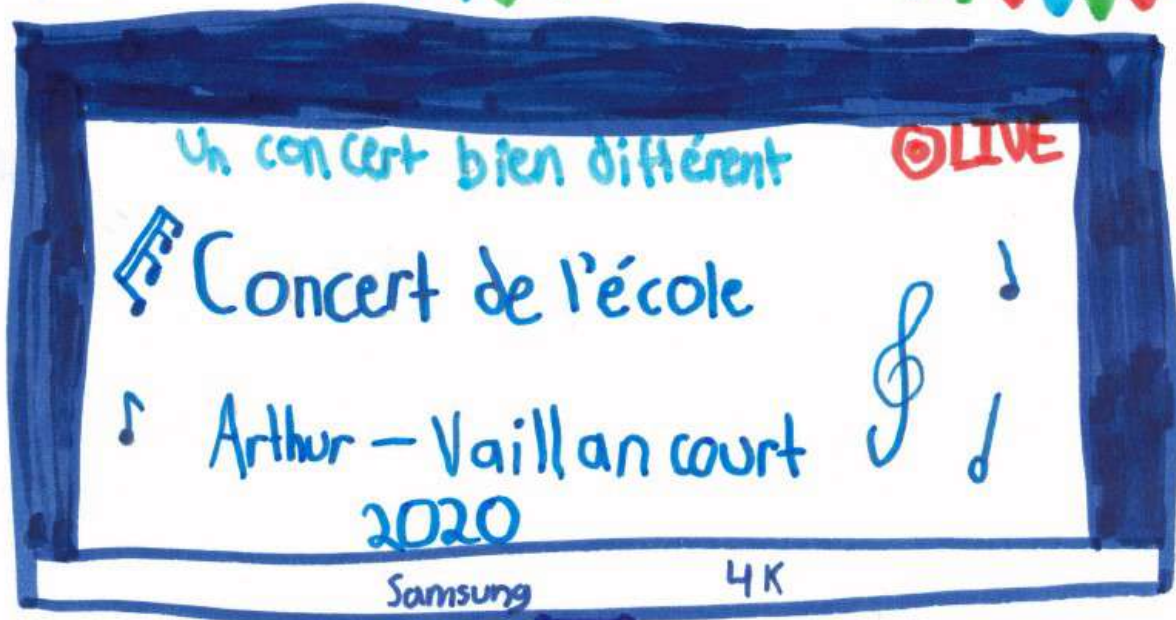 Un concert bien différent
LIVE
Concert de l'école
Arthur - Vaillancourt
2020
Samsung 4K